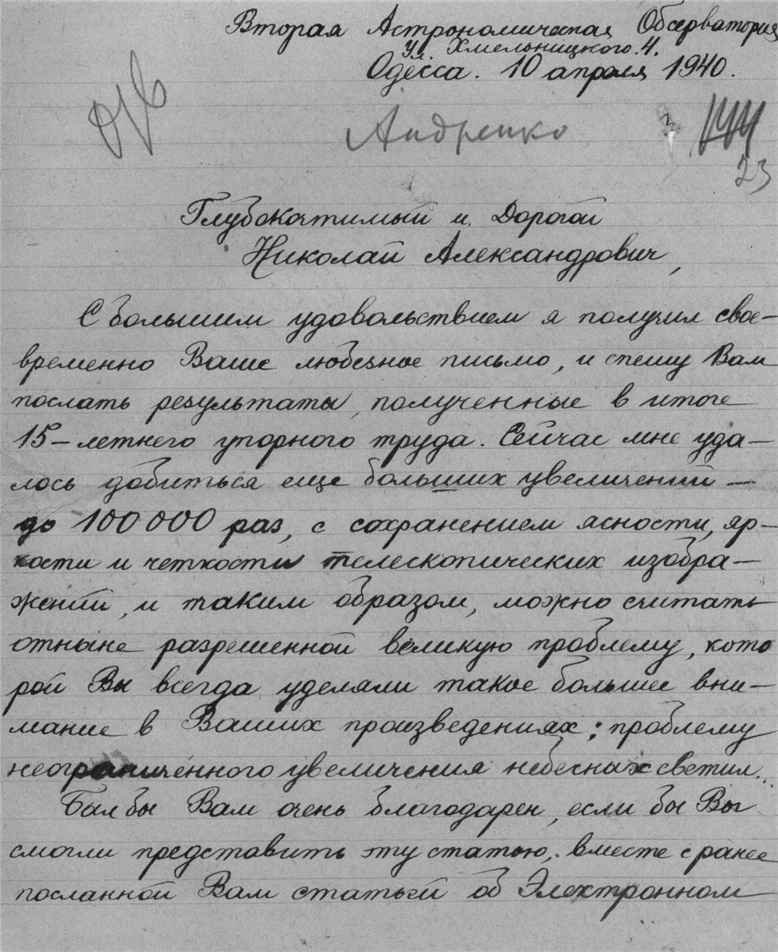 Вторая Астрономическая Обсерватория
ул. Хмельницкого. 4.
Одесса. 10 апреля 1940.
Андренко
23
Глубокочтимый и Дорогой
Николай Александрович,
С большим удовольствием я получил свое-
временно Ваше любезное письмо, и спешу Вам
послать результаты, полученные в итоге
15-летнего упорного труда. Сейчас мне уда-
лось добиться еще больших увеличений —
до 100000 раз, с сохранением ясности, яр-
кости и четкости телескопических изобра-
жений, и таким образом, можно считать
отныне разрешенной великую проблему, кото
рой Вы всегда уделяли такое большее вни-
мание в Ваших произведениях: проблему
неограниченного увеличения небесных светил...
Был бы Вам очень благодарен, если бы Вы
смогли представить эту статью, вместе с ранее
посланной Вам статьей об Электронном